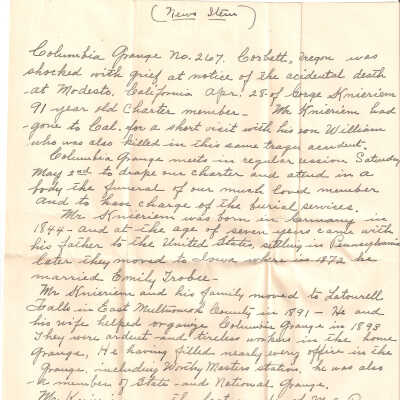 (News Item)
Columbia Grange No. 267. Corbett, Oregon was
shocked with grief at notice of the acidental death
at Modesto, California Apr. 28 of George Knieriem
91 year old charter member - Mr Knieriem had
gone to Cal. for a short visit with his son William
who was also killed in this same tragic accident.
Columbia Grange meets in regular session Saturday
May 2nd to drape our charter and attend in a
body the funeral of our much loved member
And to have charge of the burial services.
Mr. Knieriem was born in Germany in
1844 - and at the age of seven years came with
his father to the United States, settling in Pennsylvania
later they moved to Iowa where in 1872 he
married Emily Trobee -
Mr Knieriem and his family moved to Latourell
Falls in East Multnomah County in 1891 - He and
his wife helped organize Columbia Grange in 1893
They were ardent and tireless workers in the home
Grange, He having filled nearly every office in the
Grange, including Worthy Masters station. he was also
a member of State - and National Grange.